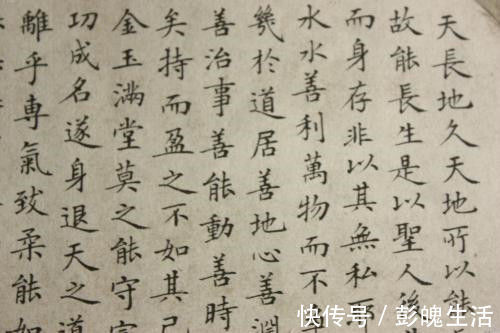 天長地久天地所以能
故能長生是以聖人後
而身存非以其無私
水水善利萬物而不
幾於道居善地心善淵
善治事善能動善時
矣持而盈之不如其已
金玉滿堂莫之能守
功成名遂身退天之道
離乎專氣致柔能如
快传号 / 彭魄生活